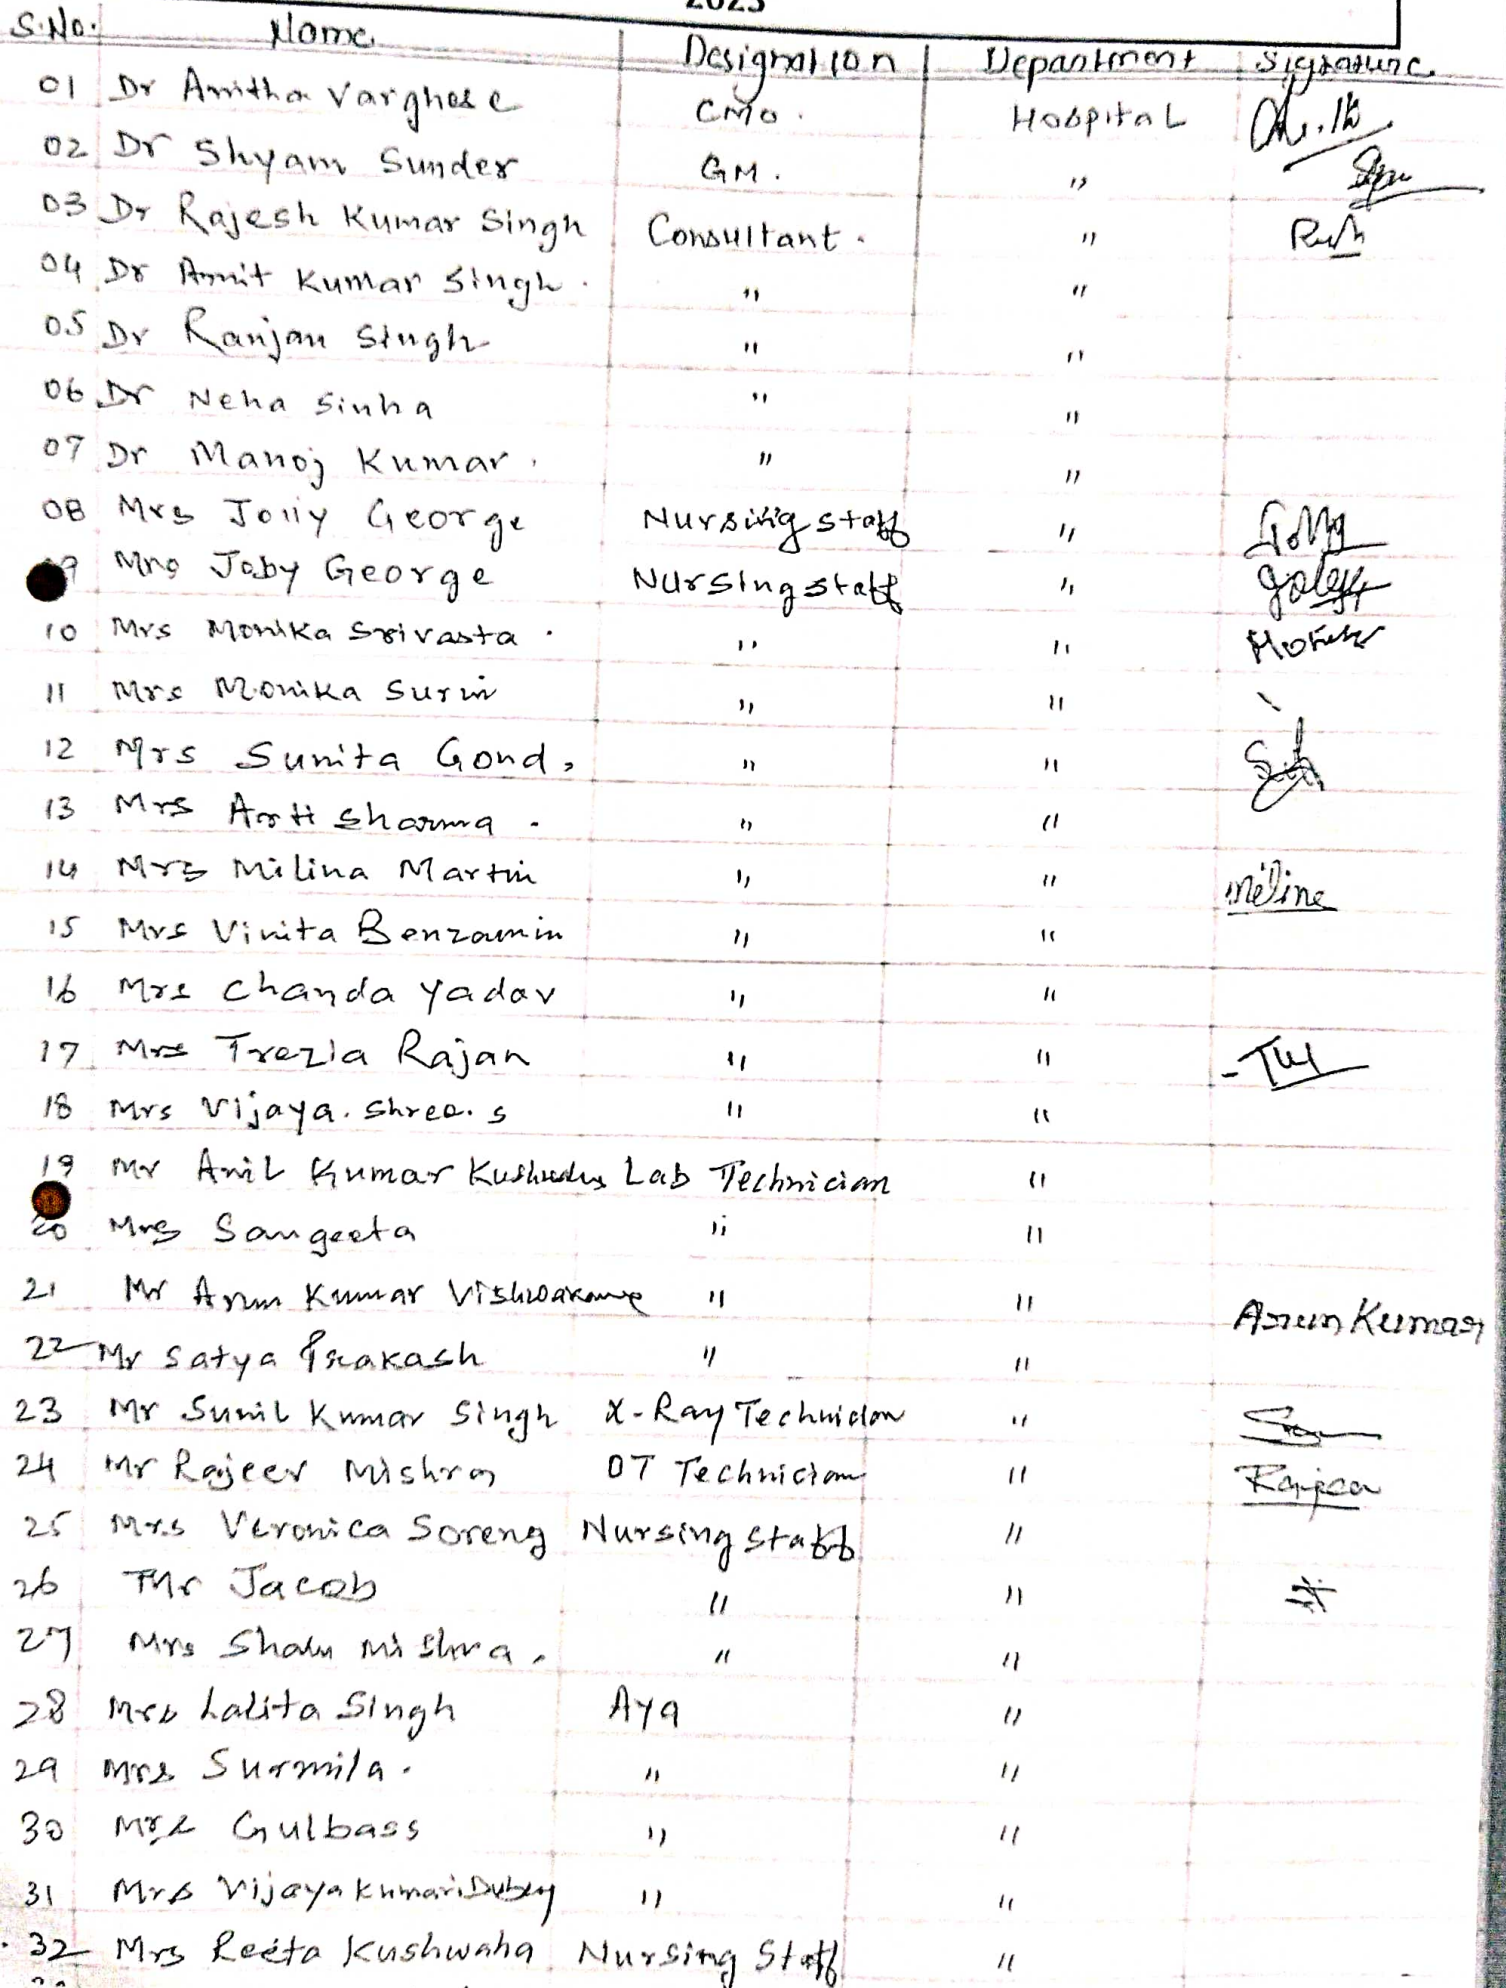 2023
S.No. Name Designation Department Signature
01 Dr Anitha Varghese CMO. Hospital
02 Dr Shyam Sunder GM. "
03 Dr Rajesh Kumar Singh Consultant. "
04 Dr Amit Kumar Singh. " "
05 Dr Ranjan Singh " "
06 Dr Neha Sinha " "
07 Dr Manoj Kumar. " "
08 Mrs Jolly George Nursing staff " Jolly
09 Mrs Joby George Nursing staff "
10 Mrs Monika Srivasta. " "
11 Mrs Monika Surin " "
12 Mrs Sunita Gond, " "
13 Mrs Arti Sharma. " "
14 Mrs Milina Martin " " miline
15 Mrs Vinita Benzamin " "
16 Mrs Chanda Yadav " "
17 Mrs Trezia Rajan " "
18 Mrs Vijaya. Shree. S " "
19 Mr Anil Kumar Lab Technician "
20 Mrs Sangeeta " "
21 Mr Arun Kumar Vishwakarma " " Arun Kumar
22 Mr Satya Prakash " "
23 Mr Sunil Kumar Singh X-Ray Technician "
24 Mr Rajeev Mishra OT Technician "
25 Mrs Veronica Soreng Nursing staff "
26 Mr Jacob " "
27 Mrs Shalu Mishra. " "
28 Mrs Lalita Singh Aya "
29 Mrs Surmila. " "
30 Mrs Gulbass " "
31 Mrs Vijaya Kumari Dubey " "
32 Mrs Reeta Kushwaha Nursing Staff "